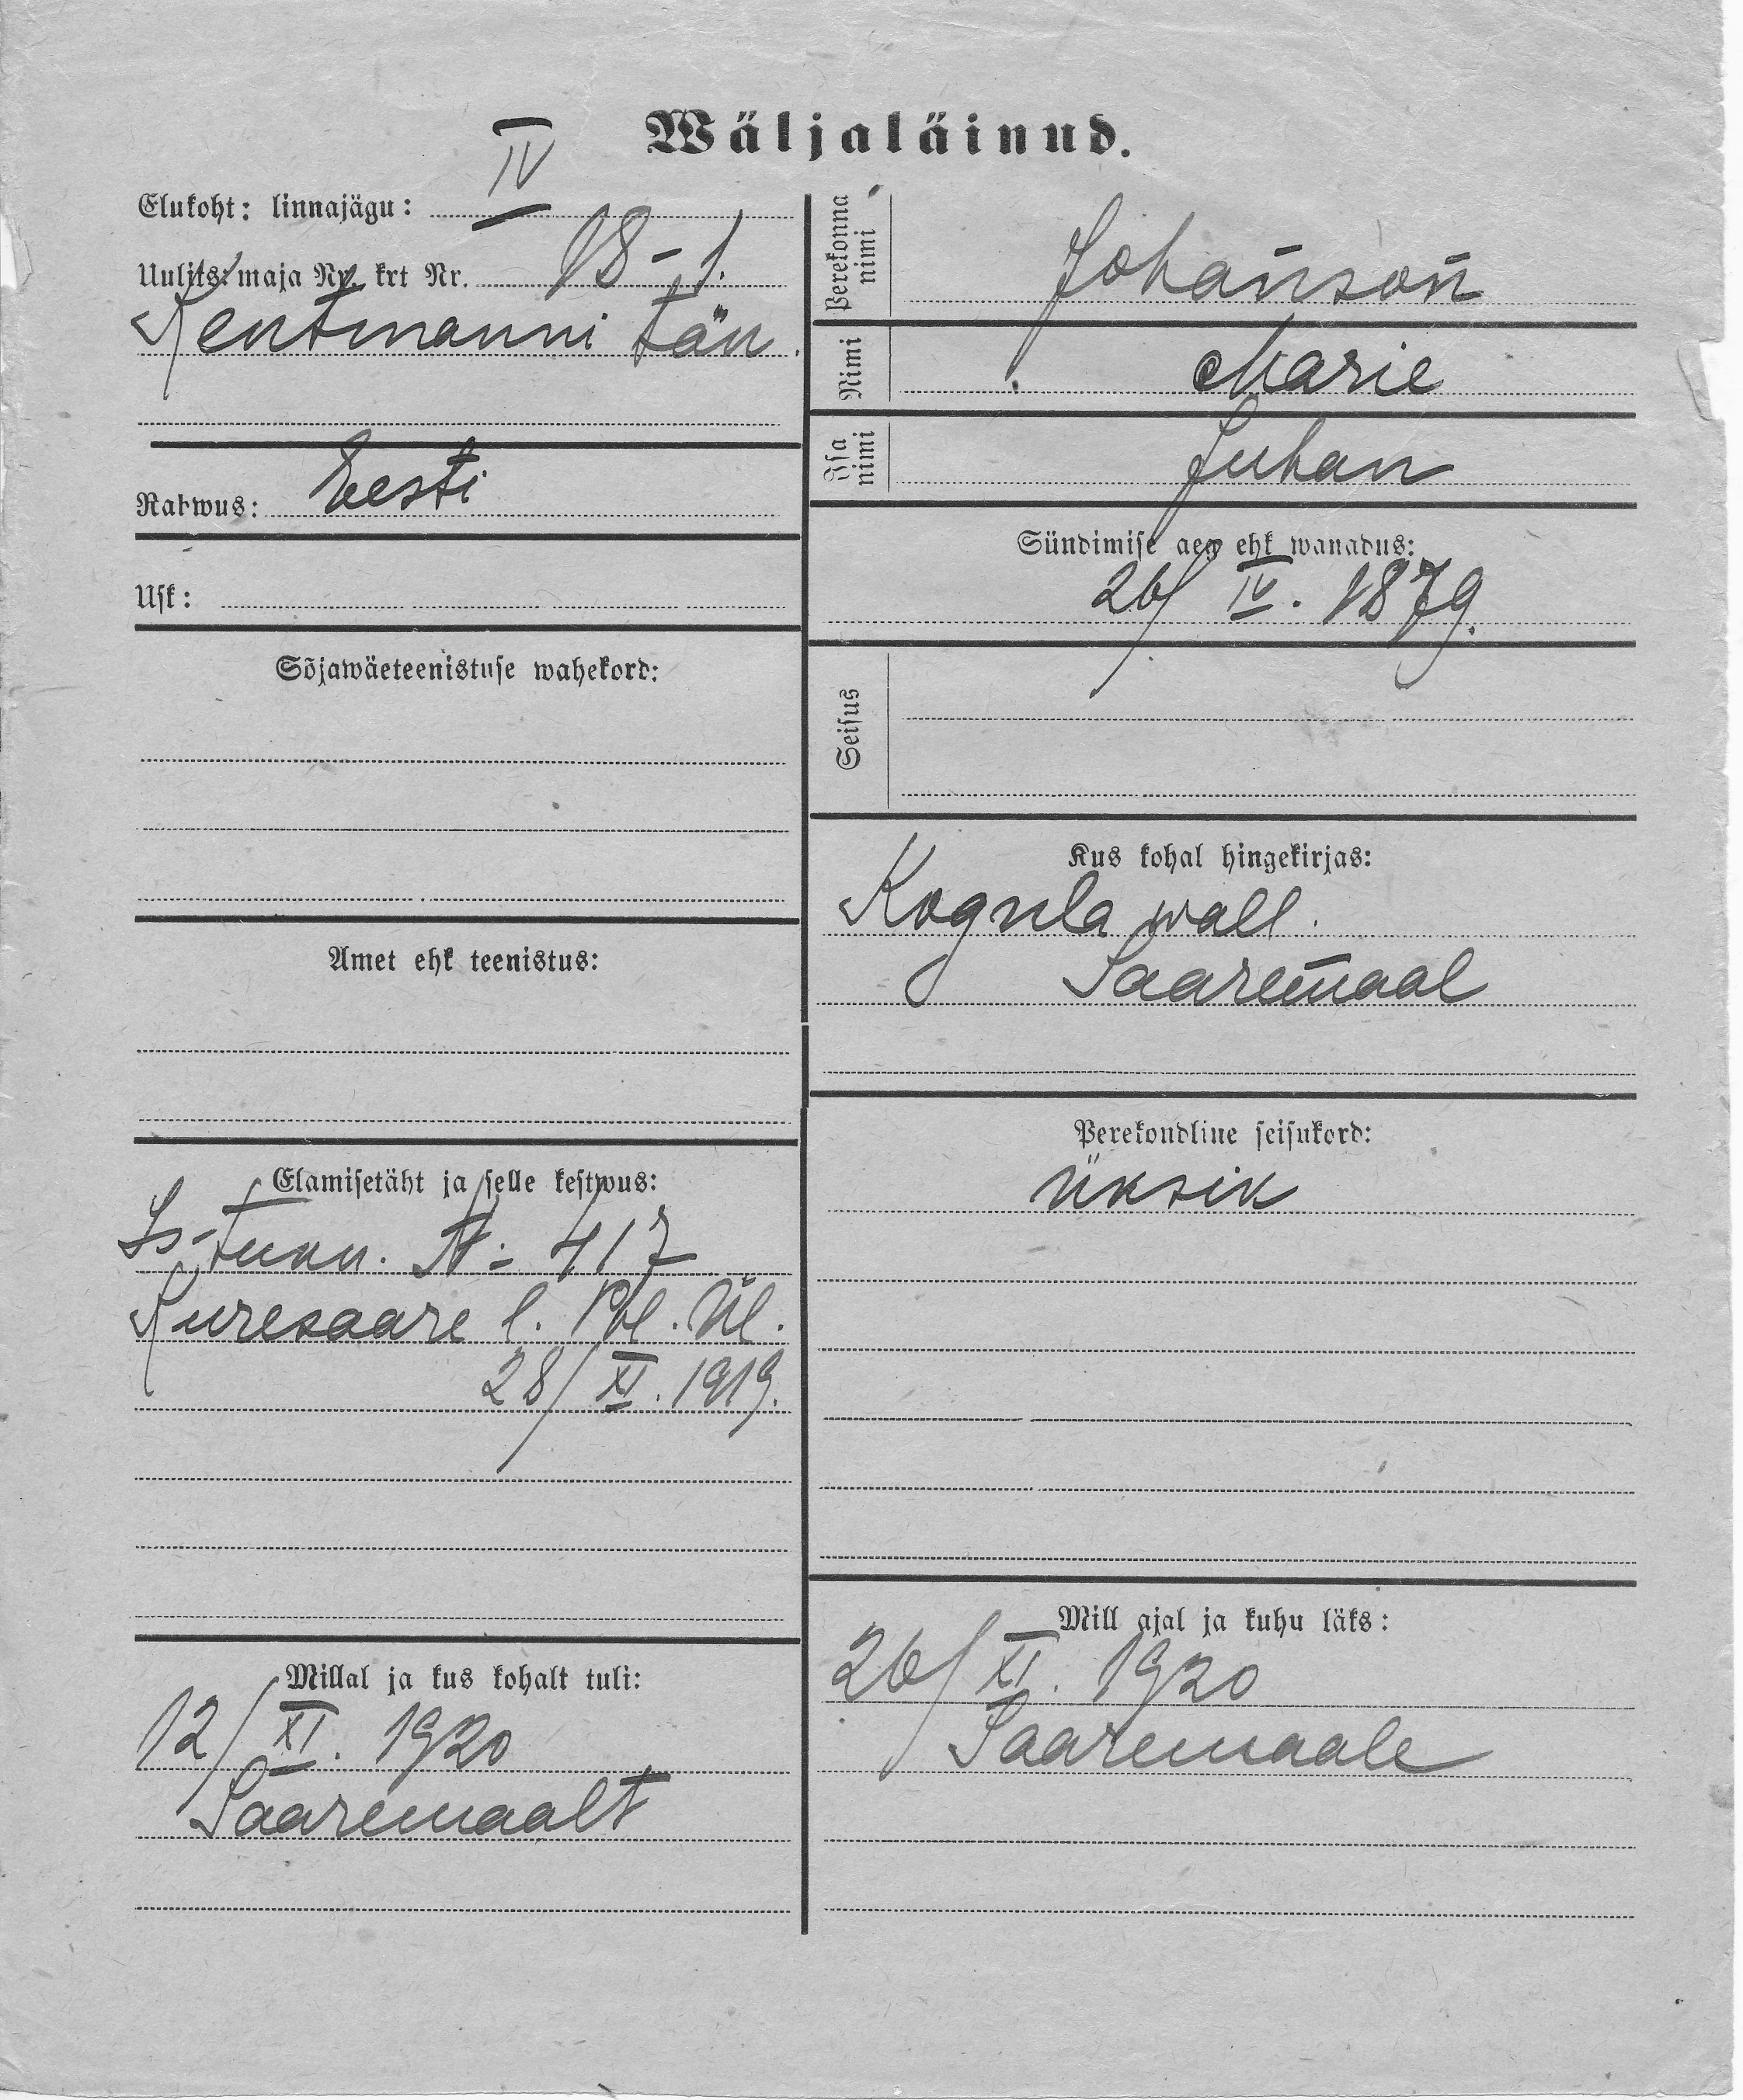 Wäljaläinud.
Elukoht: linnajägu: IV
Uulits: maja Nr. krt Nr. 18-1.
Kentmanni tän.
Rahwus: Eesti
Usk:
Sõjawäeteenistuse wahekord:
Amet ehk teenistus:
Elamisetäht ja selle kestwus:
Is-tunn. N: 417
Kuresaare l. Pol. Ül.
28/XI. 1919.
Millal ja kus kohalt tuli:
12/XI. 1920
Saaremaalt
Perekonna nimi Johanson
Nimi Marie
Isa nimi Juhan
Sündimise aeg ehk wanadus:
26/IV. 1879.
Seisus
Kus kohal hingekirjas:
Kogula wall.
Saaremaal
Perekondline seisukord:
üksik
Mill ajal ja kuhu läks:
26/XI. 1920
Saaremaale